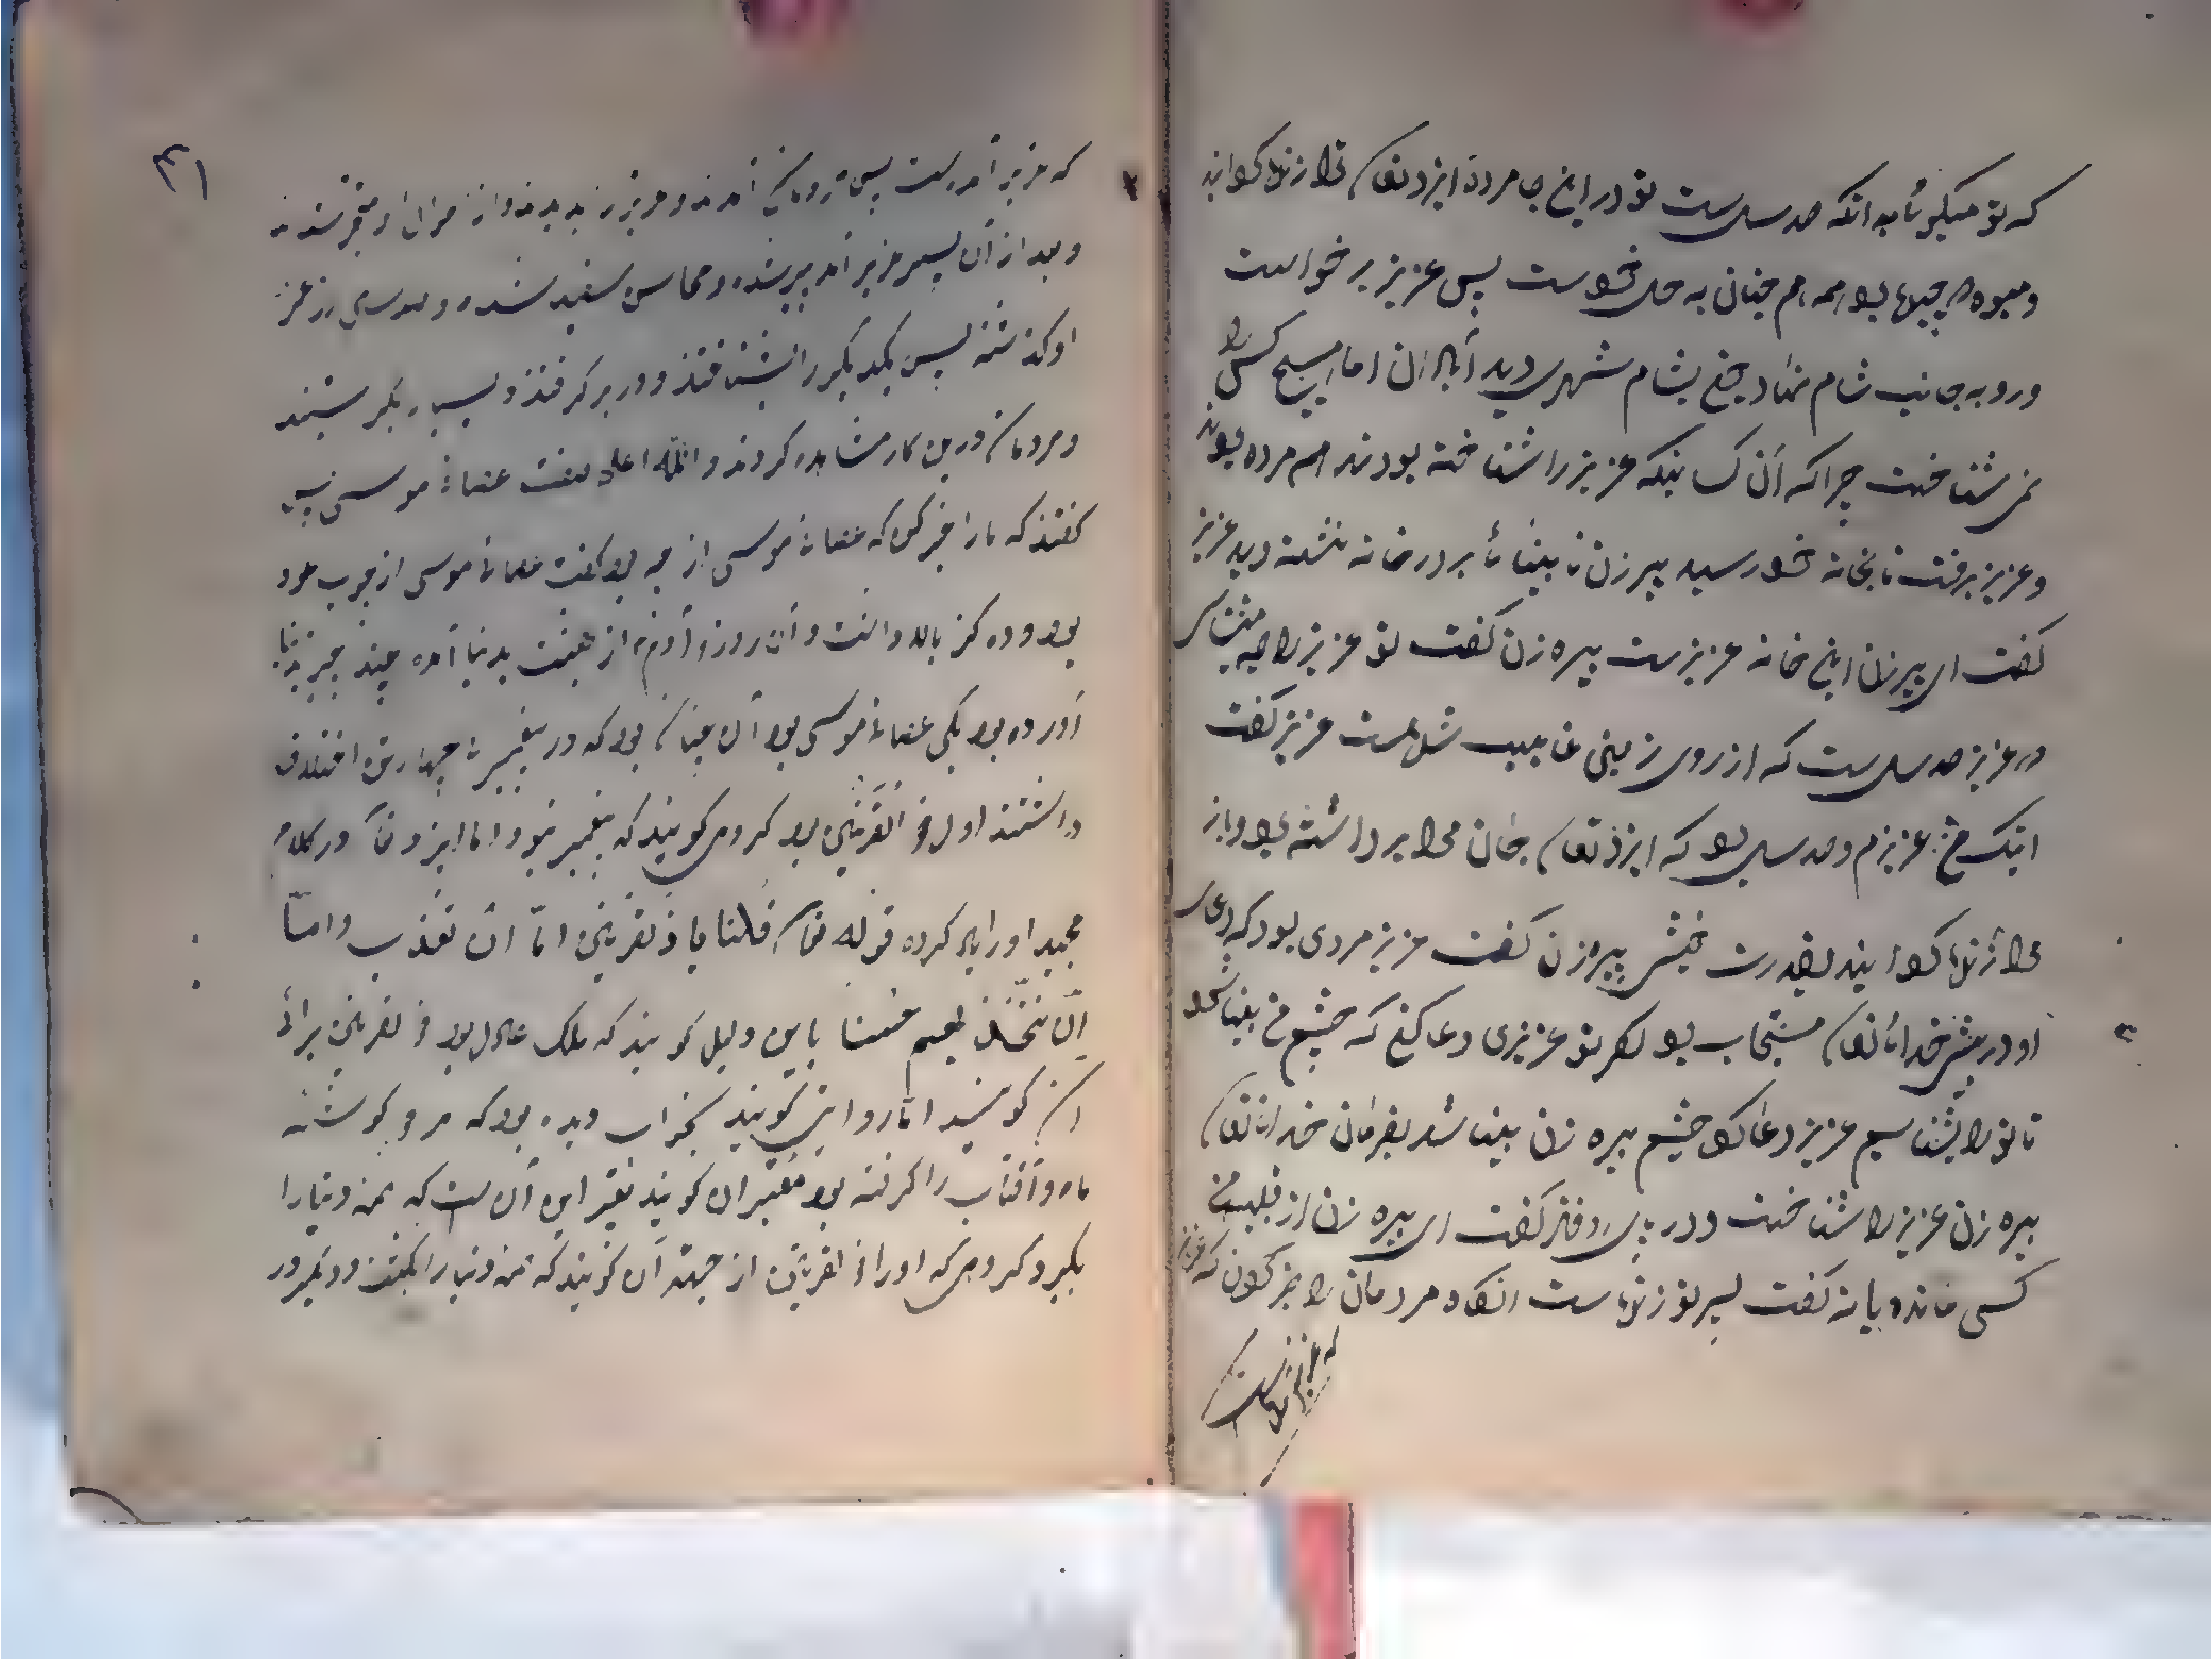 که تو میگوئی بدانکه صد سال ست تو در این جا مرده ایزد تعالی ترا زنده گردانید
و میوه هر چیزها بود همه هم چنان به حال خودست پس عزیر برخواست
و رو به جانب شام نهاد چون بشام شهری دید آبادان اما هیچ کس را
نمی شناخت چرا که آن کسانیکه عزیز را شناخته بودند هم مرده بودند
و عزیز برفت تا بخانه خود رسید پیر زن نابینائی بر در خانه نشسته دید عزیز
گفت ای پیر زن این خانه عزیز ست پیره زن گفت تو عزیز را چه
عزیز صد سال ست که از روی زمین غایب شده است عزیز گفت
اینک من عزیزم و صد سال بود که ایزد تعالی جان مرا برداشته بود و باز
مرا زنده گردانید بقدرت خویش پیرزن گفت عزیز مردی بود که دعای
او در پیش خدای تعالی مستجاب بود اگر تو عزیزی دعا کن که چشم من بینا شود
تا تو را بشناسم عزیز دعا کرد چشم پیره زن بینا شد بفرمان خدای تعالی
پیره زن عزیز را شناخت و در پای او فتاد گفت ای پیره زن از قبیله من
کسی مانده یا نه گفت پسر تو زنده است آنگاه مردمان را خبر کردن که عزیز
که عزیز آمده است
۴۱
که عزیز آمده است پس مردمان آمدند و عزیز را بدیدند و از
و بعد از آن پسر عزیز آمد پیر شده و محاسن سفید شده و صد سال از عمر
او گذشته پس یکدیگر را بشناختند و در بر گرفتند و بسیار بگریستند
و مردمان درین کار مشاهده کردند والله اعلم صفت عصای موسی پس
گفتند که ما را خبر کن که عصای موسی از چه بود گفت عصای موسی از چوب عود
بود و ده گز بالا داشت و آن روز آدم از بهشت بدنیا آمد چند چیز بدنیا
آورده بود یکی عصای موسی بود آن چنان بود که در پیغمبری چهار تن اختلاف
داشتند اول ذو القرنین بود گروهی گویند که پیغمبر نبود اما ایزد تعالی در کلام
مجید او را یاد کرده قوله تعالی قلنا یا ذلقرنین امّا ان تعذب وامّا
ان تتّخذ فیهم حسنا باین دلیل گویند که ملک عادل بود ذلقرنین برای
آن گویند اما روایتی گویند بخواب دیده بود که هر دو گوشه
ماه و آفتاب را گرفته بود معبّران گویند تعبیر این آن ست که همه دنیا را
بگیرد گروهی که او را ذلقرنین از جهت آن گویند که همه دنیا را بگشت و دیگر در